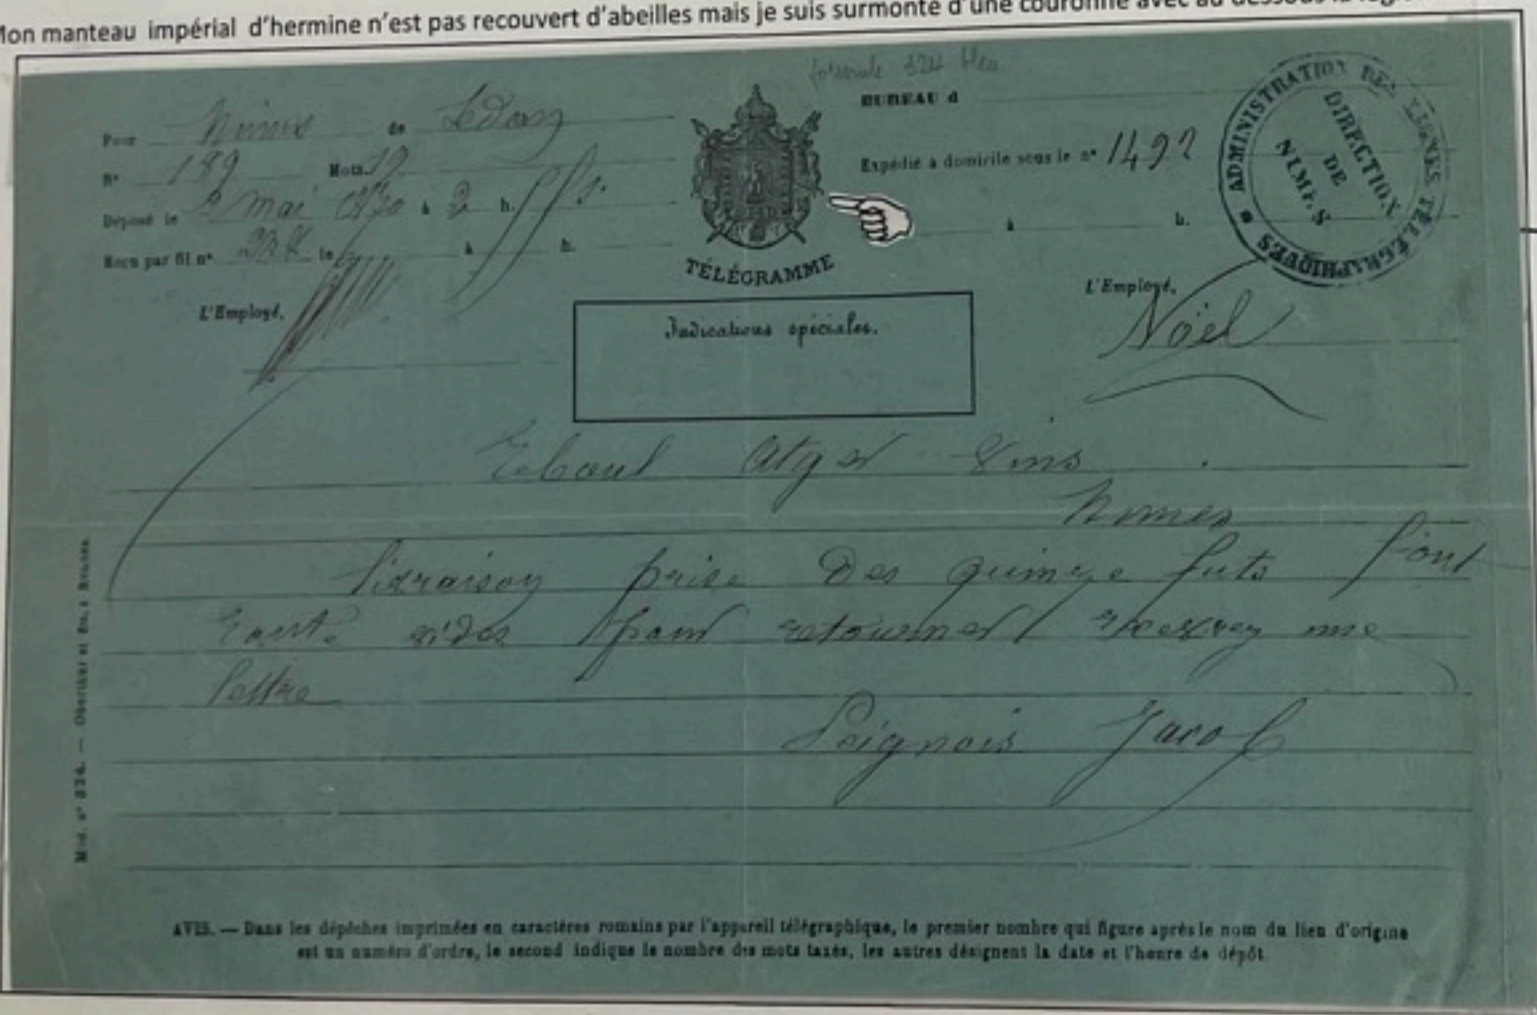 Mon manteau impérial d'hermine n'est pas recouvert d'abeilles mais je suis surmonté d'une couronne avec au dessous la
formule 324 bleu
Pour Nimes de Sedan
N° 189 Mots 19
Déposé le 2 mai 1870 à 2 h.
Reçu par fil n° le à h.
L'Employé,
TÉLÉGRAMME
BUREAU d
Expédié à domicile sous le n° 1492
à h.
L'Employé,
Noël
ADMINISTRATION DES LIGNES TÉLÉGRAPHIQUES
DIRECTION
DE
NIMES
Indications spéciales.
Nimes
livraison prise des quinze futs font
pour retourner une
lettre
Jacob
Mod. n° 324. — Oberthur et fils, à Rennes.
AVIS. — Dans les dépêches imprimées en caractères romains par l'appareil télégraphique, le premier nombre qui figure après le nom du lieu d'origine
est un numéro d'ordre, le second indique le nombre des mots taxés, les autres désignent la date et l'heure de dépôt.